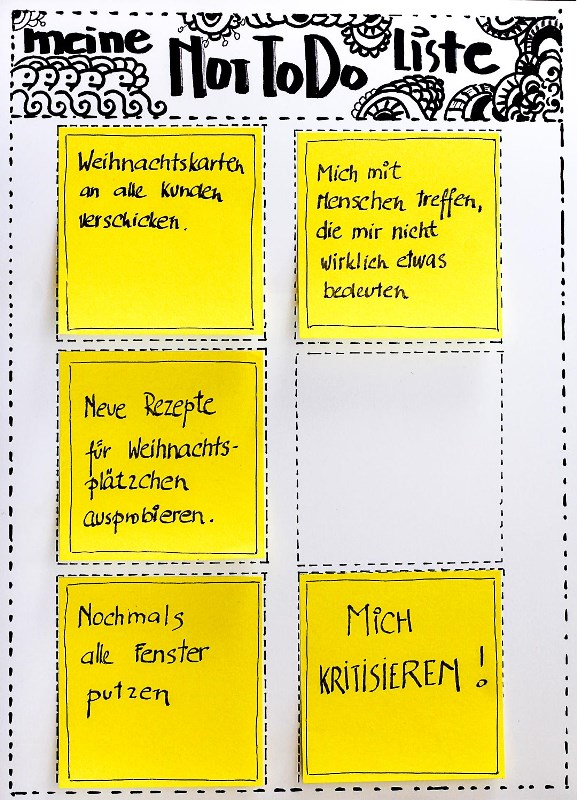 meine Not To Do Liste
Weihnachtskarten
an alle Kunden
verschicken.
Mich mit
Menschen treffen,
die mir nicht
wirklich etwas
bedeuten
Neue Rezepte
für Weihnachts-
plätzchen
ausprobieren.
Nochmals
alle Fenster
putzen
MiCH
KRiTiSiEREN!